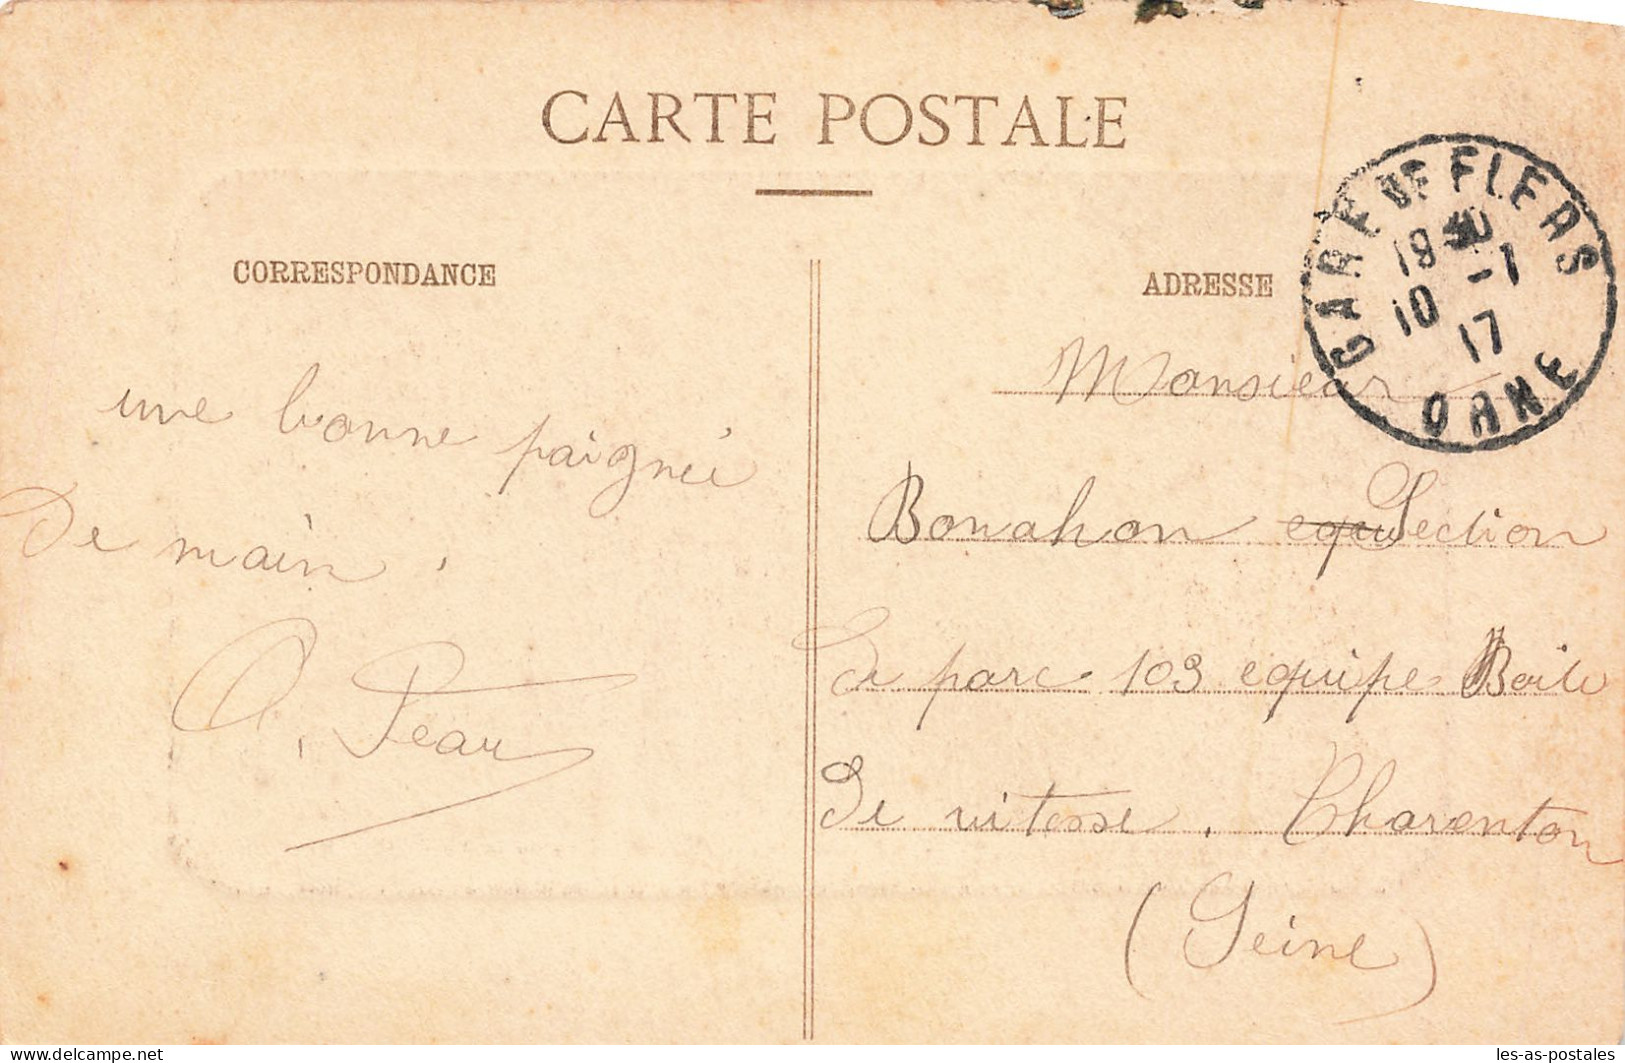 CARTE POSTALE
CORRESPONDANCE
une bonne paignéi
De main.
A. Jean
ADRESSE
Monsieur
Bonahon equi Section
De parc 103 equipe Boite
De vitesse. Charenton
(Seine)
GARE DE FLERS
18 30
10 -1
17
ORNE
delcampe.net
les-as-postales